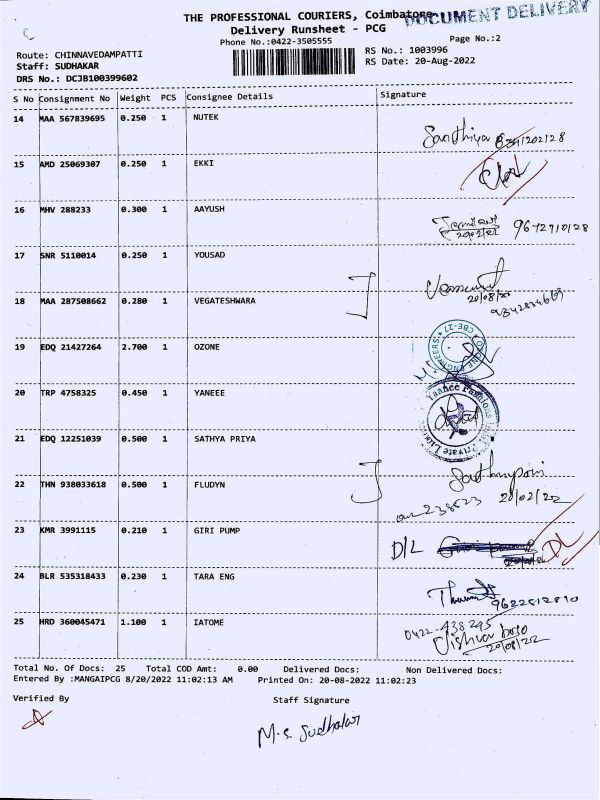 THE PROFESSIONAL COURIERS, Coimbatore
DOCUMENT DELIVERY
Delivery Runsheet - PCG
Phone No.:0422-3505555
Page No.:2
Route: CHINNAVEDAMPATTI
RS No.: 1003996
Staff: SUDHAKAR
RS Date: 20-Aug-2022
DRS No.: DCJB100399602
S No Consignment No Weight PCS Consignee Details Signature
14 MAA 567839695 0.250 1 NUTEK
Sandhiya
15 AMD 25069307 0.250 1 EKKI
16 MHV 288233 0.300 1 AAYUSH
17 SNR 5110014 0.250 1 YOUSAD
18 MAA 287508662 0.280 1 VEGATESHWARA
20/08/22
19 EDQ 21427264 2.700 1 OZONE
OZONE ENGINEERS * CBE-27 *
20 TRP 4758325 0.450 1 YANEEE
Yanhee Fashions Private Limited
21 EDQ 12251039 0.500 1 SATHYA PRIYA
22 THN 938033618 0.500 1 FLUDYN
23 KMR 3991115 0.210 1 GIRI PUMP
D/L DL
24 BLR 535318433 0.230 1 TARA ENG
25 HRD 360045471 1.100 1 IATOME
0422-438295
20/08/22
Total No. Of Docs: 25 Total COD Amt: 0.00 Delivered Docs: Non Delivered Docs:
Entered By :MANGAIPCG 8/20/2022 11:02:13 AM Printed On: 20-08-2022 11:02:23
Verified By Staff Signature
M.S. Sudhakar